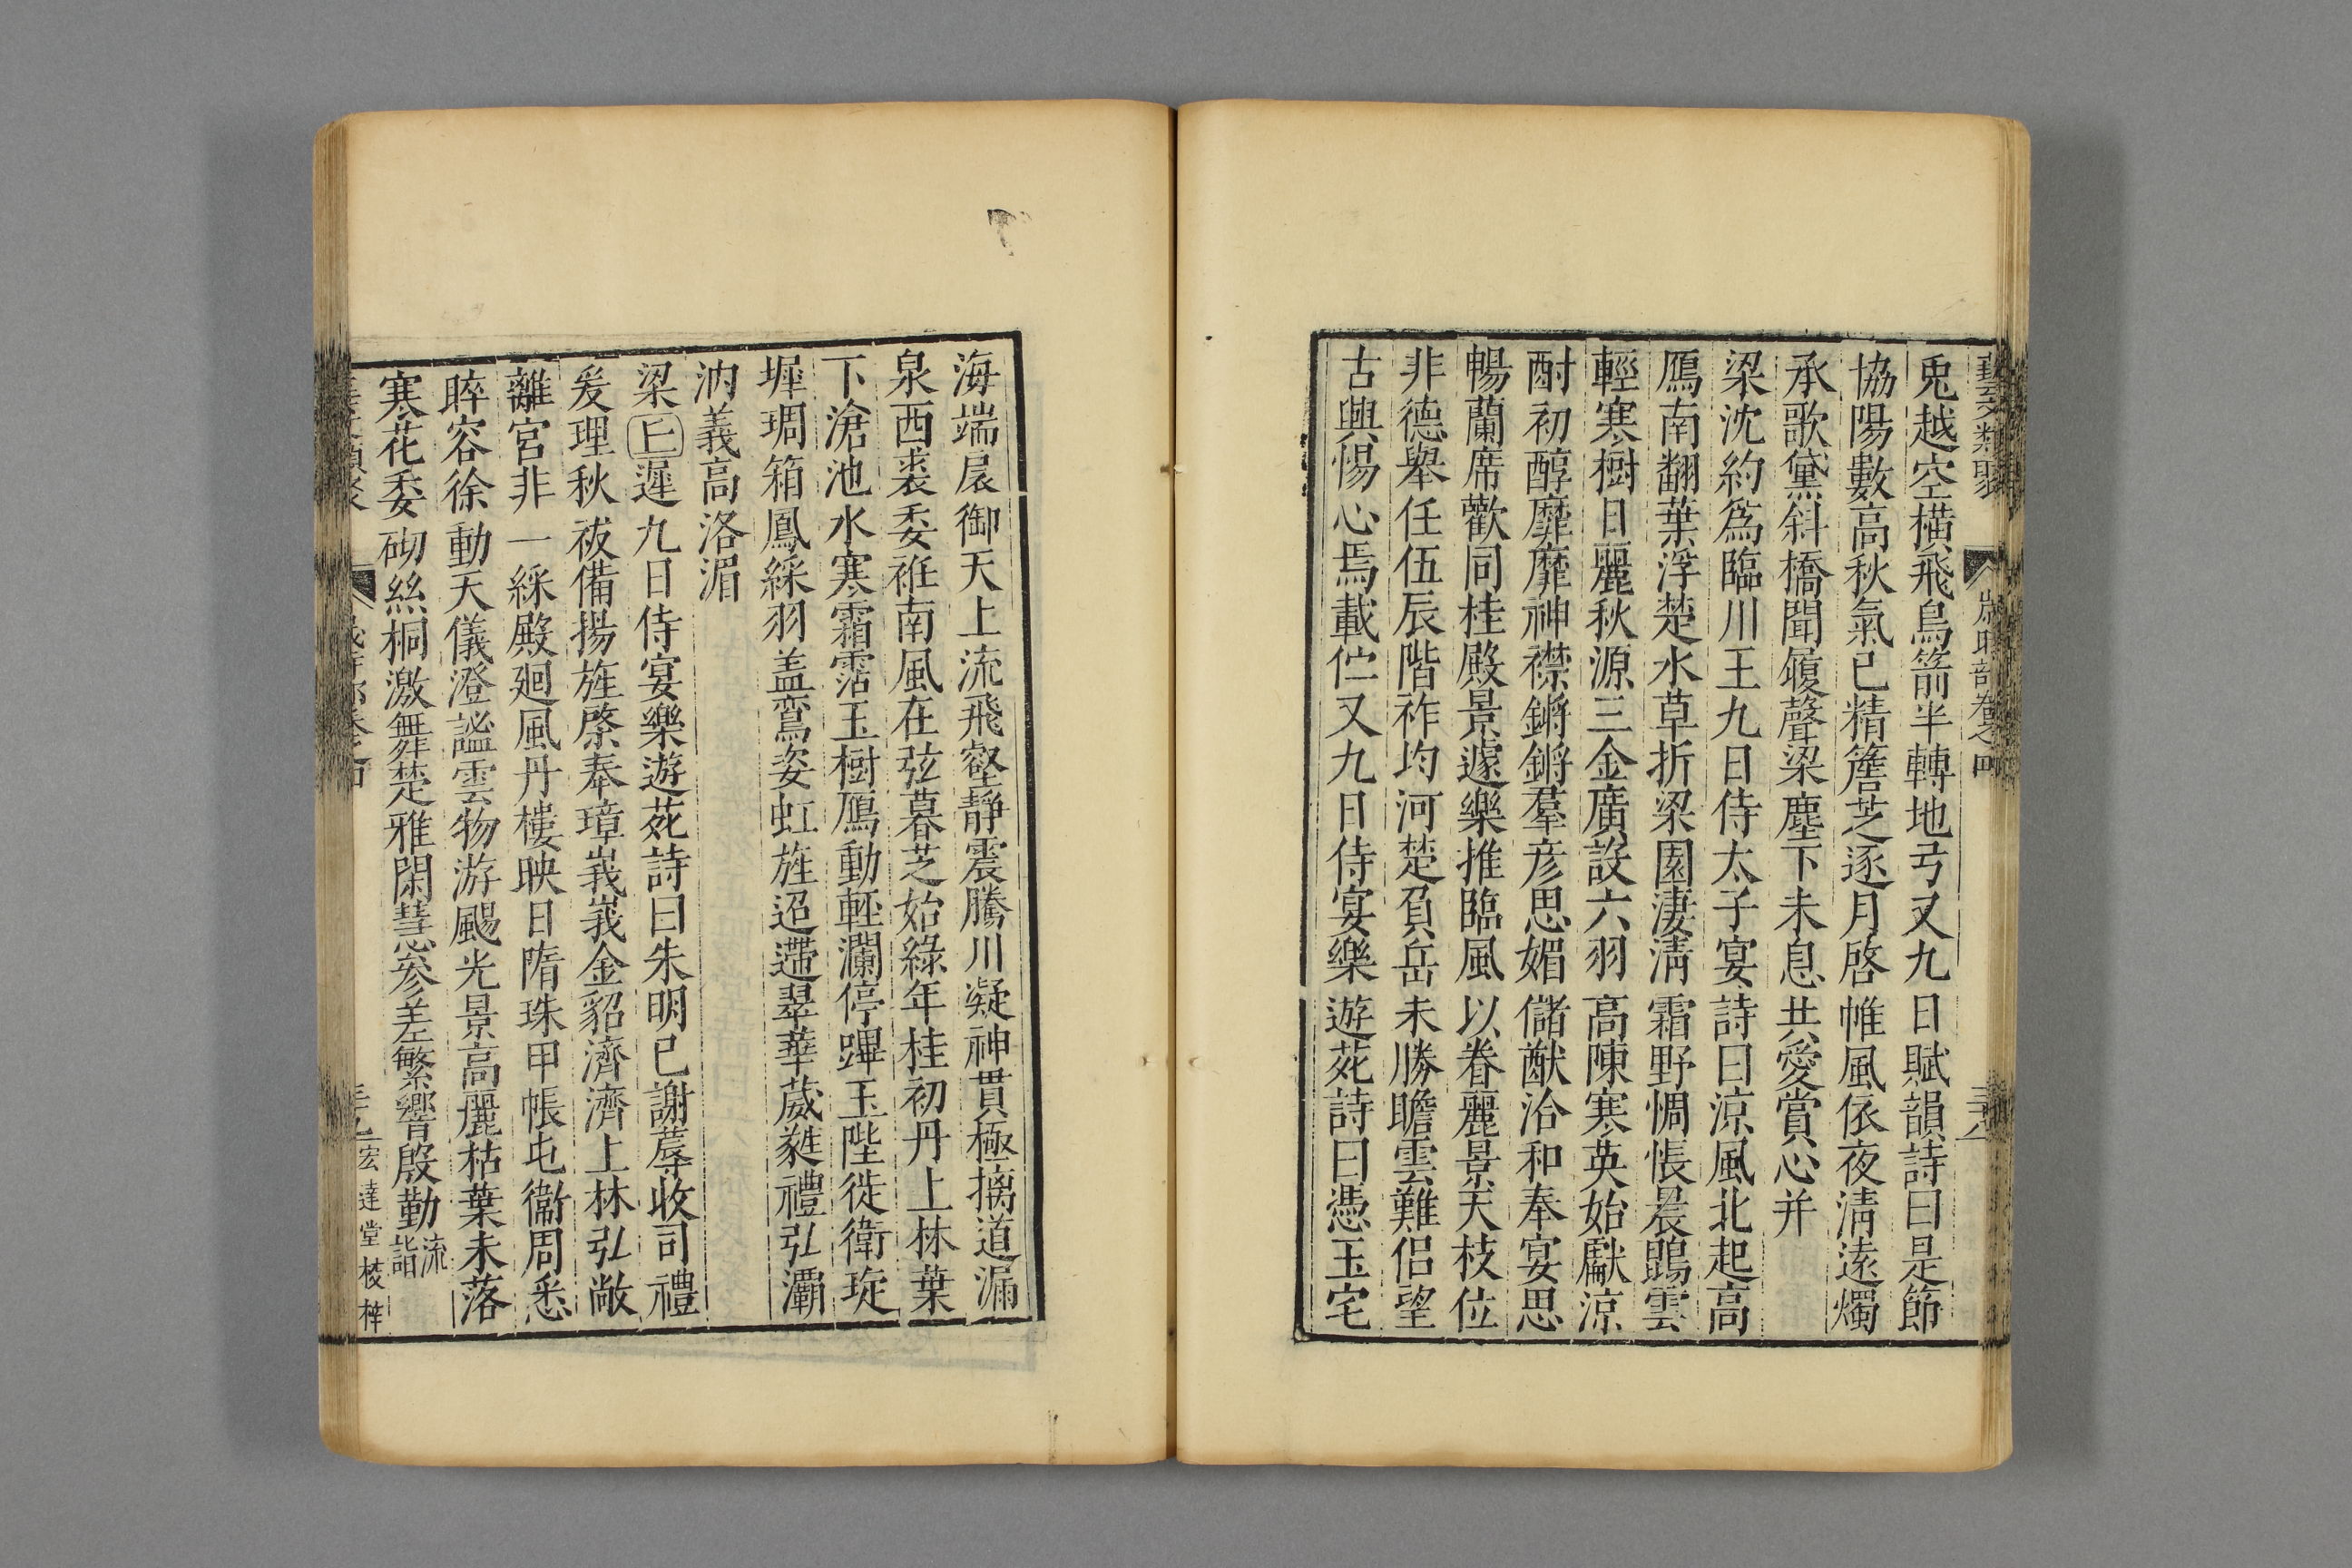 藝文類聚 歲時部卷之四 三十八
兎越空橫飛鳥箭半轉地弓又九日賦韻詩曰是節
協陽數高秋氣已精簷芝逐月啓帷風依夜清遠燭
承歌黛斜橋聞履聲梁塵下未息共愛賞心并
梁沈約爲臨川王九日侍太子宴詩曰涼風北起高
鴈南翻葉浮楚水草折梁園淒清霜野惆悵晨鵾雲
輕寒樹日麗秋源三金廣設六羽高陳寒英始獻涼
酎初醇靡靡神襟鏘鏘羣彦思媚儲猷洽和奉宴恩
暢蘭席歡同桂殿景遽樂推臨風以眷麗景天枝位
非德舉任伍辰階祚均河楚負岳未勝瞻雲難侣望
古興惕心焉載伫又九日侍宴樂遊苑詩曰憑玉宅
海端扆御天上流飛壑静震騰川凝神貫極摛道漏
泉西裘委衽南風在弦暮芝始綠年桂初丹上林葉
下滄池水寒霜霑玉樹鴈動輕瀾停蹕玉陛徙衛琁
墀琱箱鳳綵羽盖鸞姿虹旌迢遰翠華葳蕤禮弘灞
汭義高洛湄
梁丘遲九日侍宴樂遊苑詩曰朱明已謝蓐收司禮
爰理秋祓備揚旌棨奉璋峩峩金貂濟濟上林弘敞
離宮非一綵殿廻風丹樓映日隋珠甲帳屯衞周悉
睟容徐動天儀澄謐雲物游颺光景高麗枯葉未落
寒花委砌絲桐激舞楚雅閑慧參差繁響殷勤流詣
宏達堂梭梓